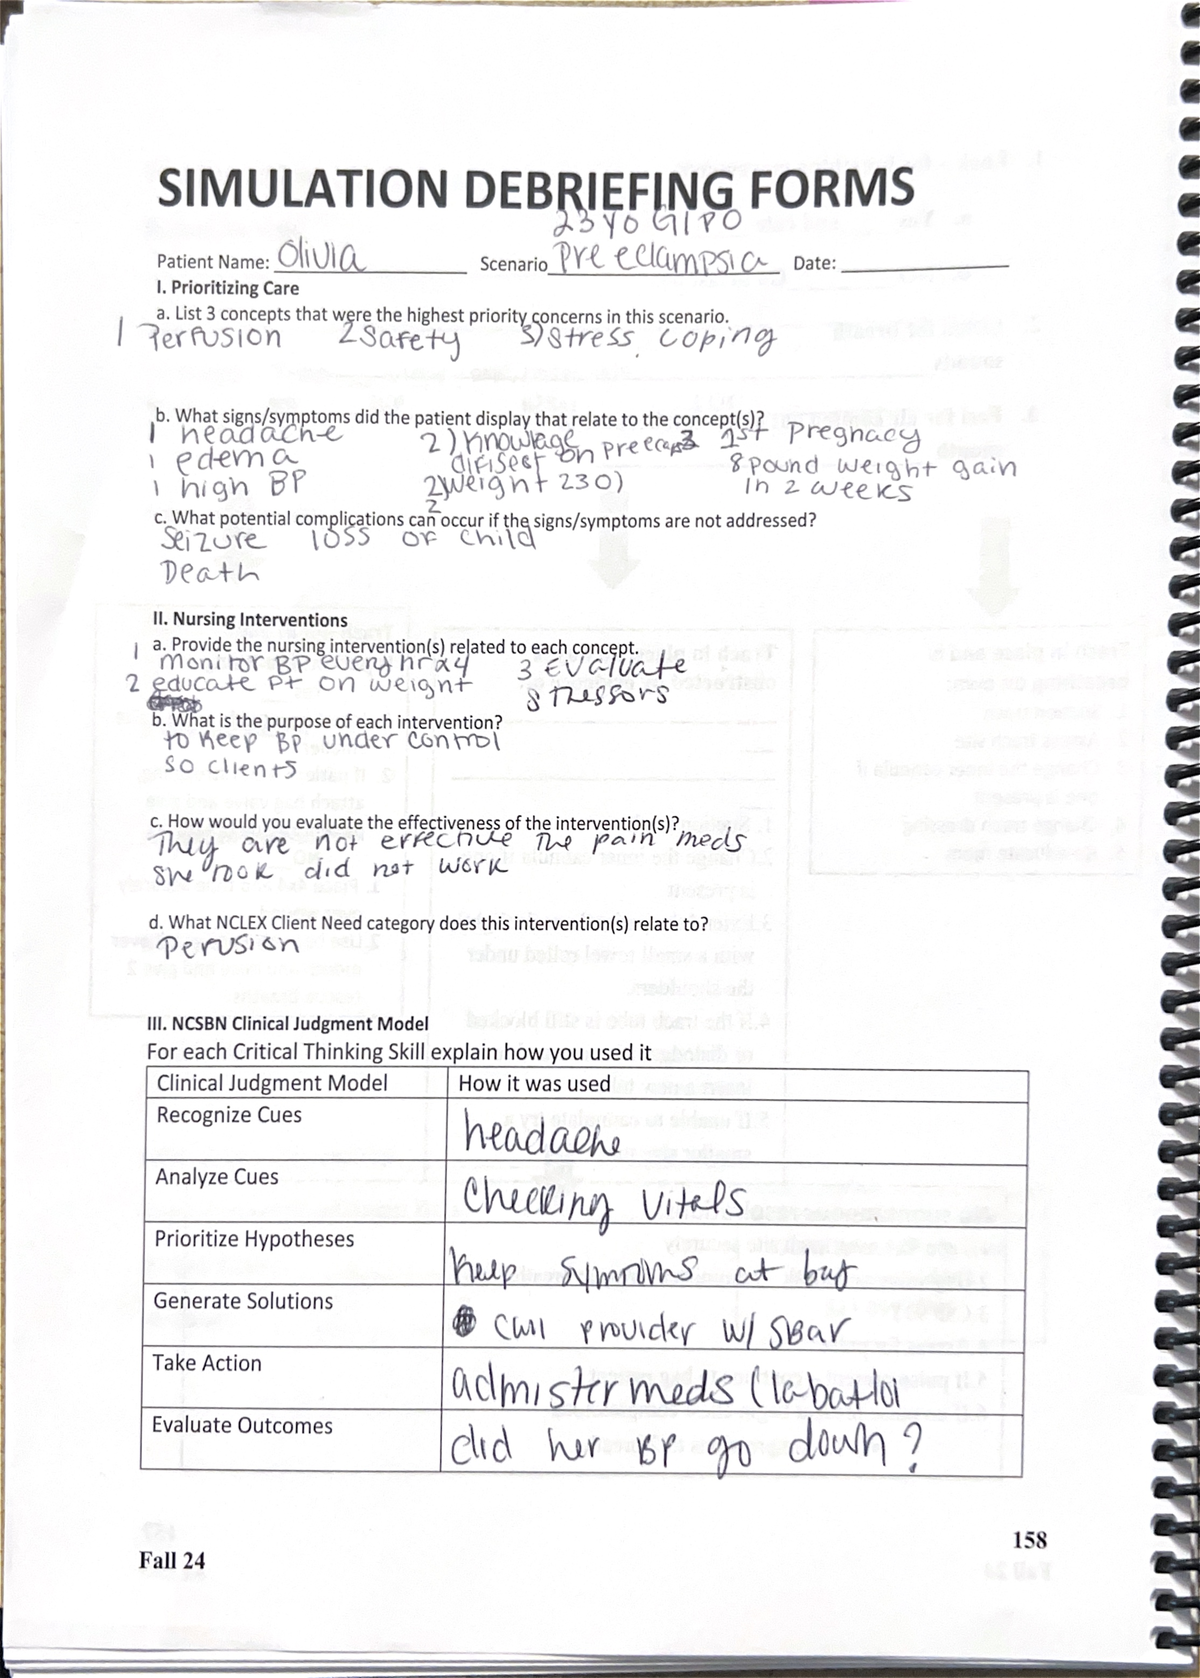 SIMULATION DEBRIEFING FORMS
23 YO G1P0
Patient Name: Olivia Scenario Preeclampsia Date:
I. Prioritizing Care
a. List 3 concepts that were the highest priority concerns in this scenario.
1 Perfusion 2 Safety 3) Stress, coping
b. What signs/symptoms did the patient display that relate to the concept(s)?
1 headache 2) Knowlage 3 1st Pregnacy
1 edema on 8 pound weight gain
1 high BP 2) weight 230) in 2 weeks
2
c. What potential complications can occur if the signs/symptoms are not addressed?
Seizure loss of child
Death
II. Nursing Interventions
a. Provide the nursing intervention(s) related to each concept.
1 monitor BP every hr x4 3 Evaluate
2 educate Pt on weight stressors
b. What is the purpose of each intervention?
to keep BP under control
so clients
c. How would you evaluate the effectiveness of the intervention(s)?
They are not effective The pain meds
she took did not work
d. What NCLEX Client Need category does this intervention(s) relate to?
Perusion
III. NCSBN Clinical Judgment Model
For each Critical Thinking Skill explain how you used it
Clinical Judgment Model How it was used
Recognize Cues headache
Analyze Cues Checking Vitals
Prioritize Hypotheses Keep at bay
Generate Solutions Call provider w/ SBAR
Take Action admister meds (labatlol
Evaluate Outcomes did her BP go down?
158
Fall 24